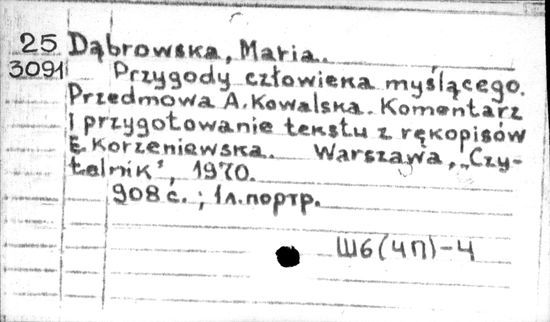 25 Dąbrowska, Maria.
3091 Przygody człowieka myślącego.
Przedmowa A. Kowalska. Komentarz
i przygotowanie tekstu z rękopisów
E. Korzeniewska. Warszawa, „Czy-
telnik", 1970.
908 с.; 1л. портр.
Ш6(4П)-4